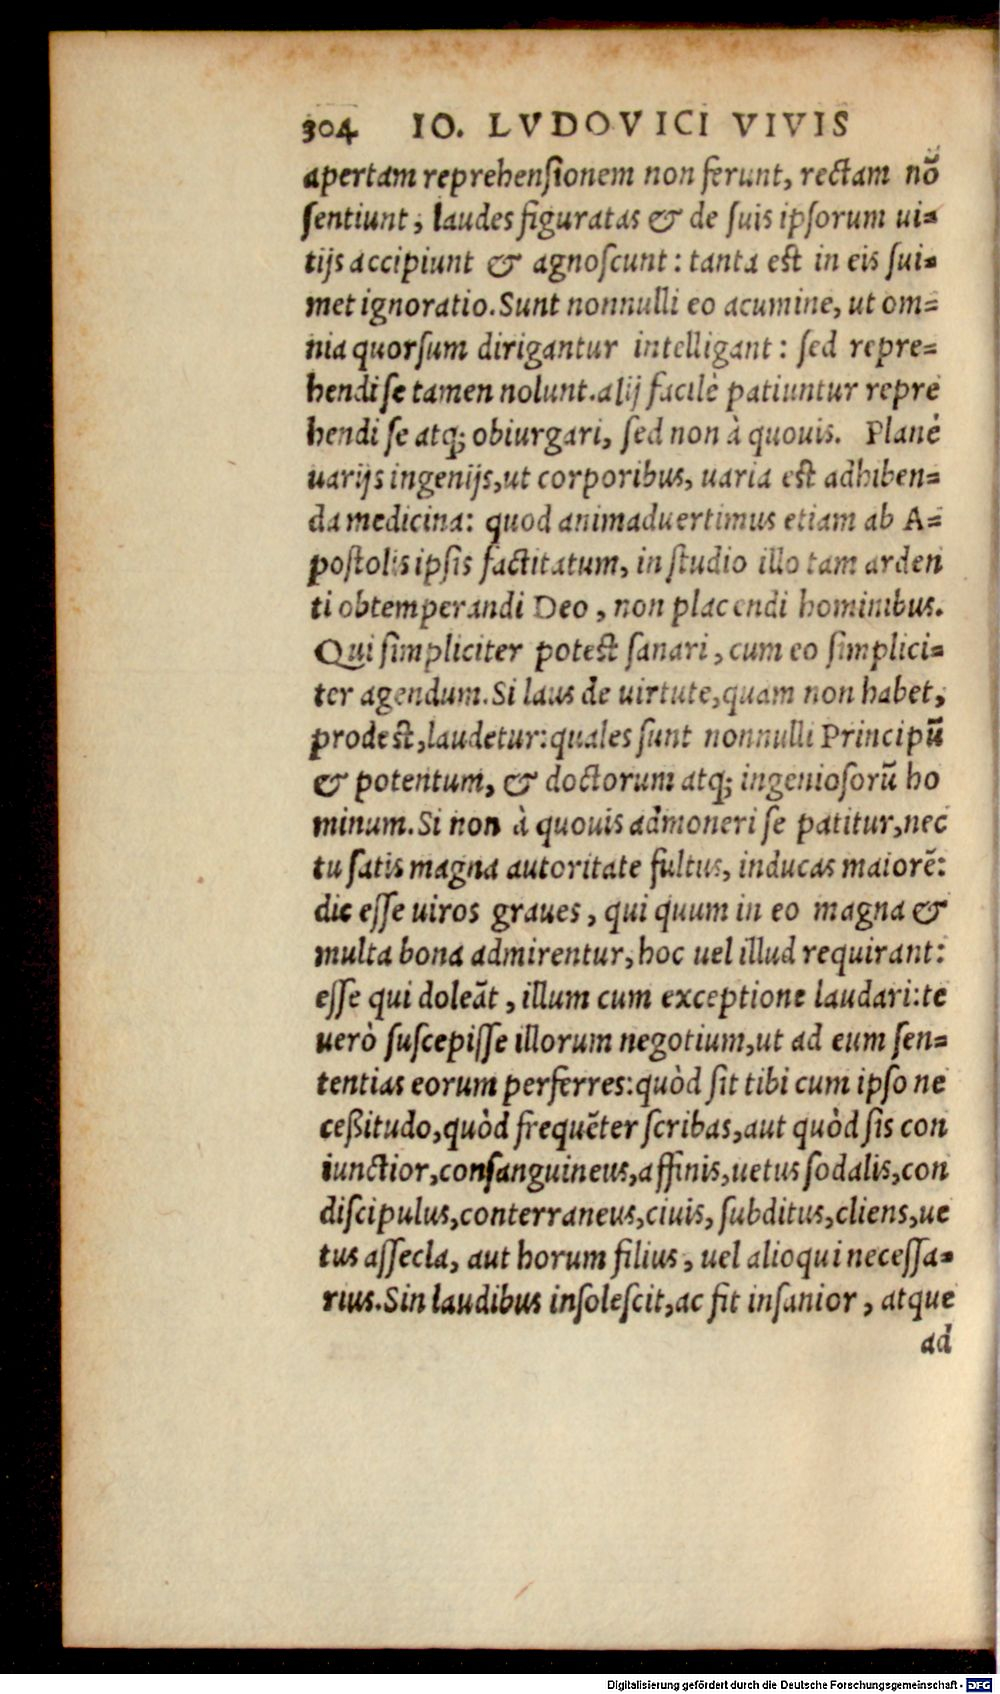 304 IO. LVDOVICI VIVIS
apertam reprehensionem non ferunt, rectam nõ
sentiunt, laudes figuratas & de suis ipsorum ui-
tijs accipiunt & agnoscunt: tanta est in eis sui-
met ignoratio. Sunt nonnulli eo acumine, ut om-
nia quorsum dirigantur intelligant: sed repre-
hendi se tamen nolunt. alij facilè patiuntur repre
hendi se atq; obiurgari, sed non à quouis. Planè
uarijs ingenijs, ut corporibus, uaria est adhiben-
da medicina: quod animaduertimus etiam ab A-
postolis ipsis factitatum, in studio illo tam arden
ti obtemperandi Deo, non placendi hominibus.
Qui simpliciter potest sanari, cum eo simplici-
ter agendum. Si laus de uirtute, quam non habet,
prodest, laudetur: quales sunt nonnulli Principũ
& potentum, & doctorum atq; ingeniosorũ ho
minum. Si non à quouis admoneri se patitur, nec
tu satis magna autoritate fultus, inducas maiorẽ:
dic esse uiros graues, qui quum in eo magna &
multa bona admirentur, hoc uel illud requirant:
esse qui doleãt, illum cum exceptione laudari: te
uerò suscepisse illorum negotium, ut ad eum sen-
tentias eorum perferres: quòd sit tibi cum ipso ne
ceßitudo, quòd frequẽter scribas, aut quòd sis con
iunctior, consanguineus, affinis, uetus sodalis, con
discipulus, conterraneus, ciuis, subditus, cliens, ue
tus assecla, aut horum filius, uel alioqui necessa-
rius. Sin laudibus insolescit, ac fit insanior, atque
ad
Digitalisierung gefördert durch die Deutsche Forschungsgemeinschaft - DFG